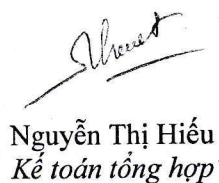 Nguyễn Thị Hiếu
Kế toán tổng hợp